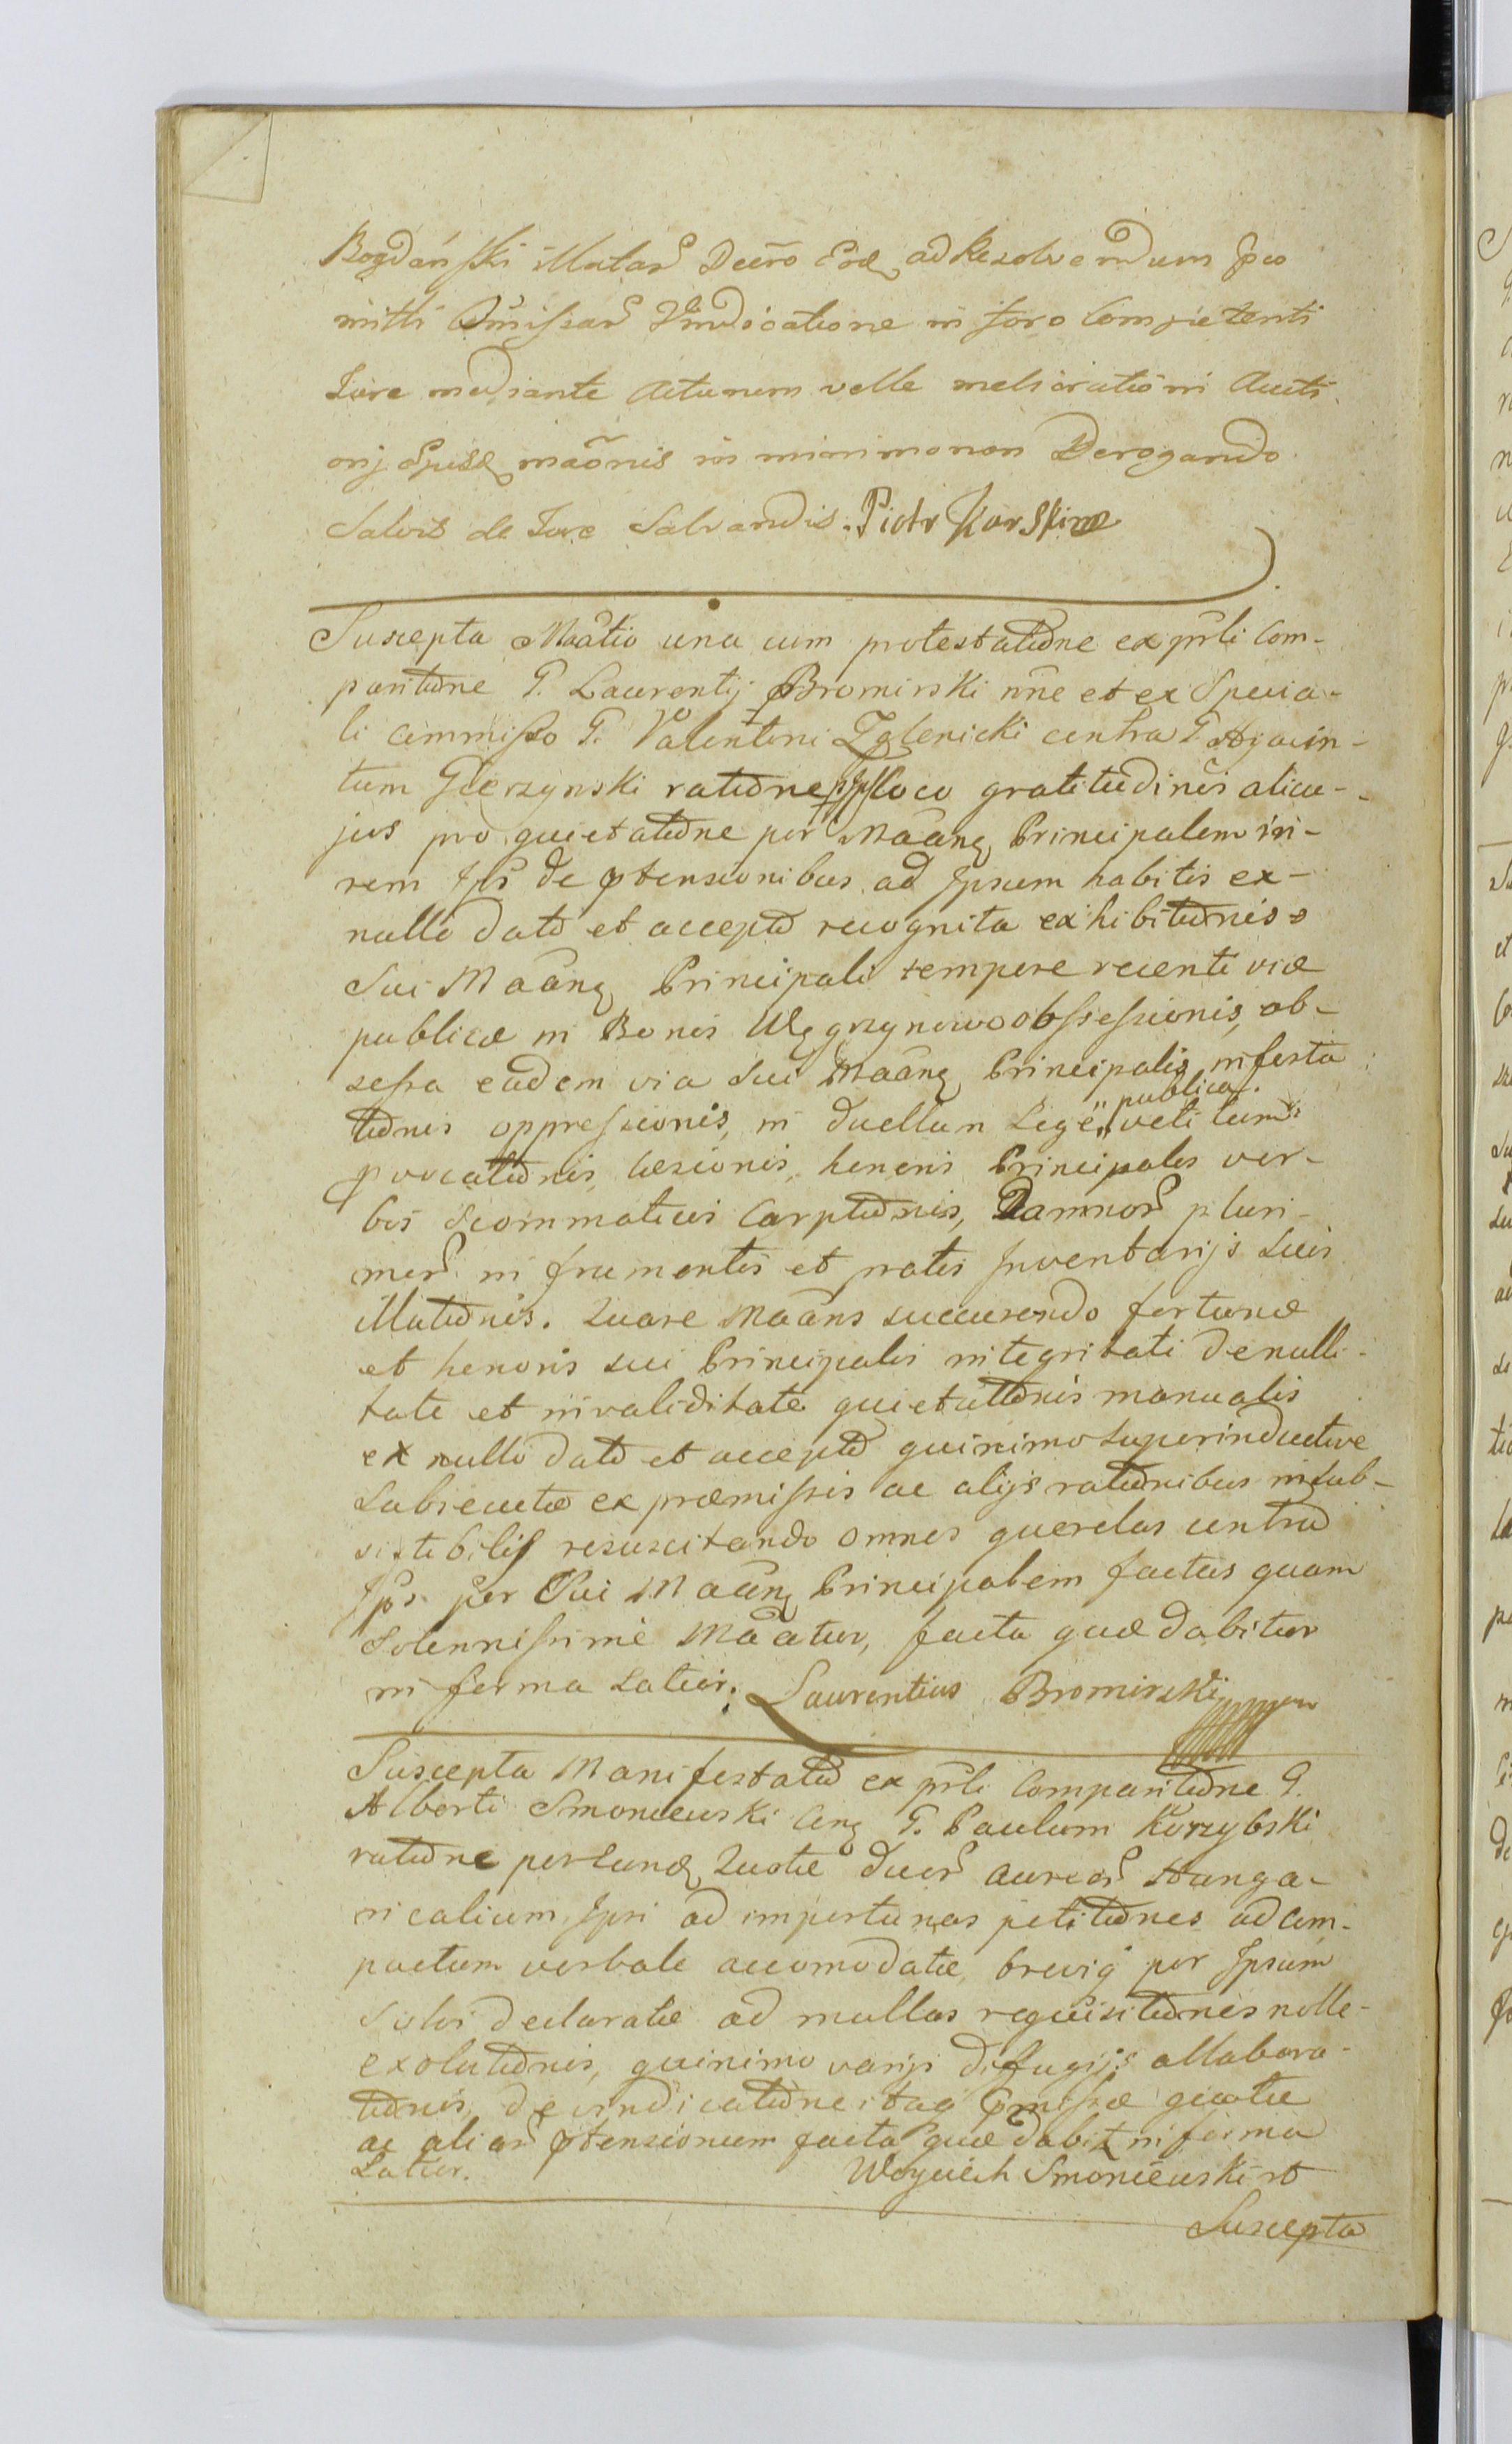 Bogdański illatar Decro ad Resolvendum
mitti Vindicatione in foro Competenti
Jure mediante Acturum velle meliorationi Aucti
orij maõnis in minimo non Derogando
Salvis de Jure Salvandis. Piotr Karski
Suscepta Maãtio una cum protestatione ex prli Com-
paritione G. Laurentij Bromirski nne et ex Specia-
li Commisso G. Valentini Zglenicki contra G. Hyacin-
tum Gierzynski ratione loco gratitudinis alicu-
jus pro quietatione per Maãnq Principalem in
rem Jpsi de ptensionibus ad Jpsum habitis ex-
nullo dato et accepto recognita exhibitionis
Sui Maãnq Principali tempore recenti viæ
publicæ in Bonis Węgrzynowo obsessionis, ob-
sessa eadem via Sui Maãnq Principalis infesta
tionis oppressionis, in duellum Lege publica vetitum
pvocationis, læsionis honoris Principalis ver-
bis Scommaticis Carptionis, Damnor pluri-
mor in frumentis et pratis Jnventarijs Suis
illationis. Quare Maãns succurendo fortunæ
et honoris sui Principalis integritati de nulli-
tate et invaliditate quietationis manualis
ex nullo dato et accepto quinimo superinductive
Subsecutæ ex præmissis ac alijs rationibus insub-
sistibilis resuscitando omnes querelas contra
Jps. per Sui Maãnq Principalem factas quam
Solennissime Maãtur, facta quæ dabitur
in forma Latior. Laurentius Bromirski
Suscepta Manifestatio ex prli Comparitione G.
Alberti Smoniewski Cenq G. Paulum Korzybski
ratione per Quotæ duor aureor Hunga-
ricalium Jpsi ad importunas petitiones ad Com-
pactum verbale accomodatæ, breviq per Jpsum
Solvi declaratæ ad multas requisitiones nolle-
exolutionis, quinimo varijs difugijs allabora-
tionis, de vindicatione itaq pmissæ quotæ
ac aliar ptensionum facta quæ dabit in forma
Latior. Woyciech Smoniewski
Suscepta